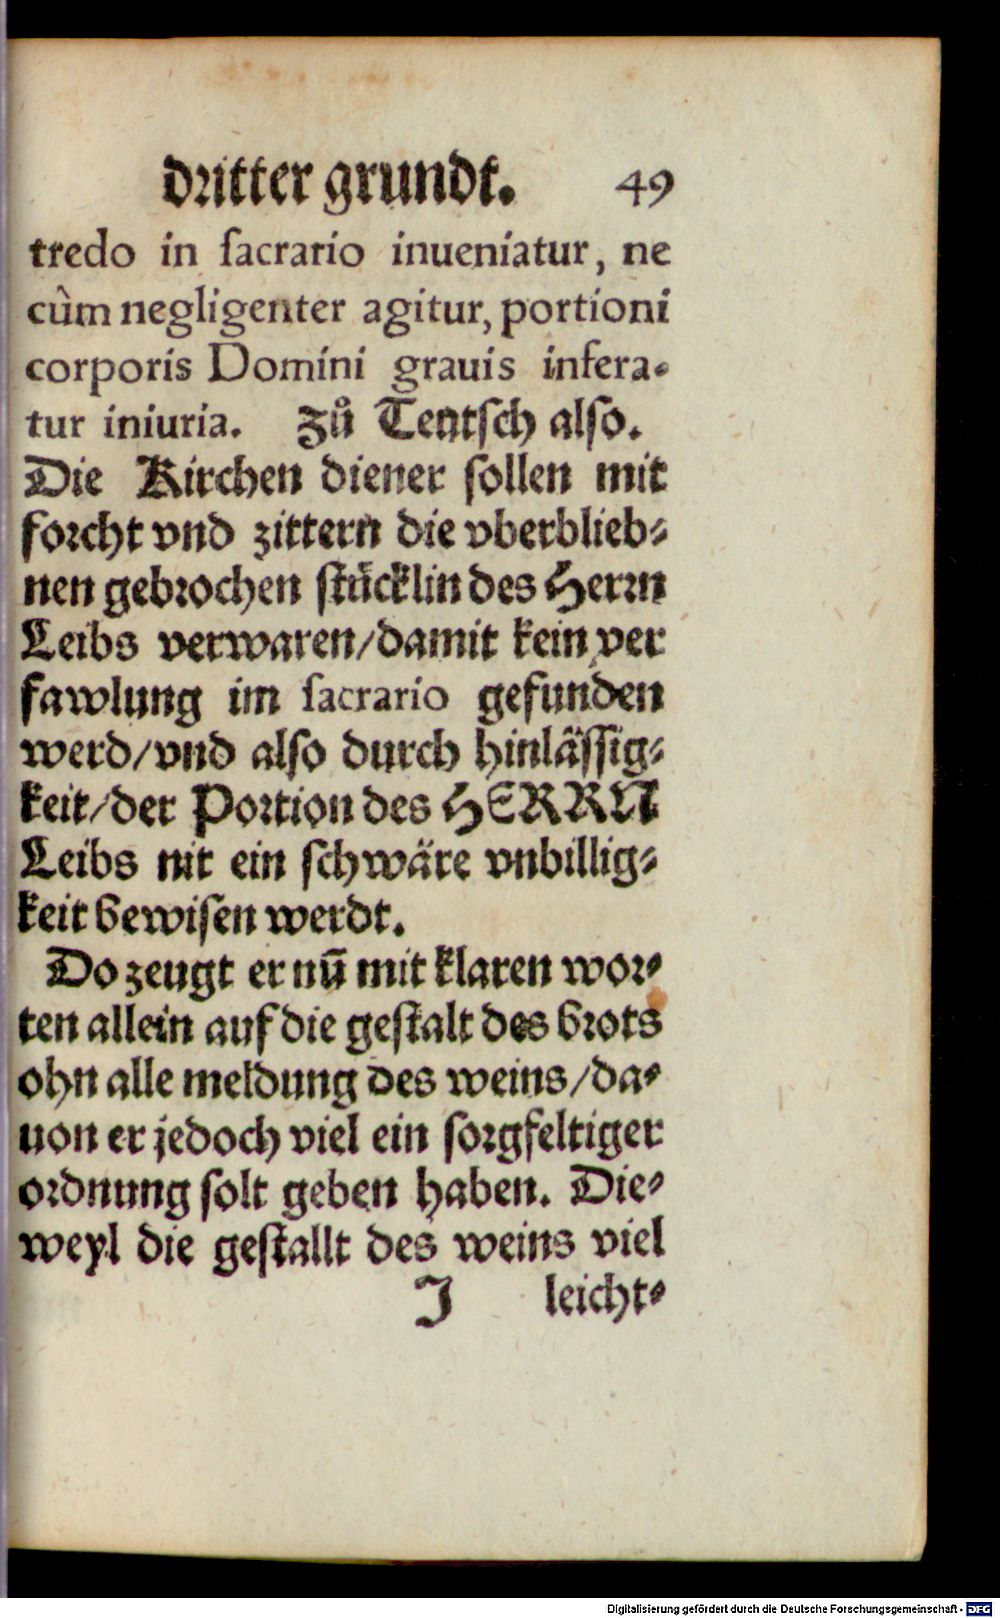 dritter grundt. 49
tredo in sacrario inueniatur, ne
cùm negligenter agitur, portioni
corporis Domini grauis infera-
tur iniuria. Zů Teutsch also.
Die Kirchen diener sollen mit
forcht vnd zittern die vberblieb-
nen gebrochen stücklin des Herrn
Leibs verwaren/damit kein ver
fawlung im sacrario gefunden
werd/vnd also durch hinlässig-
keit/der Portion des HERRN
Leibs nit ein schwäre vnbillig-
keit bewisen werdt.
Do zeugt er nū mit klaren wor-
ten allein auf die gestalt des brots
ohn alle meldung des weins/da-
uon er jedoch viel ein sorgfeltiger
ordnung solt geben haben. Die-
weyl die gestallt des weins viel
J leicht-
Digitalisierung gefördert durch die Deutsche Forschungsgemeinschaft - DFG